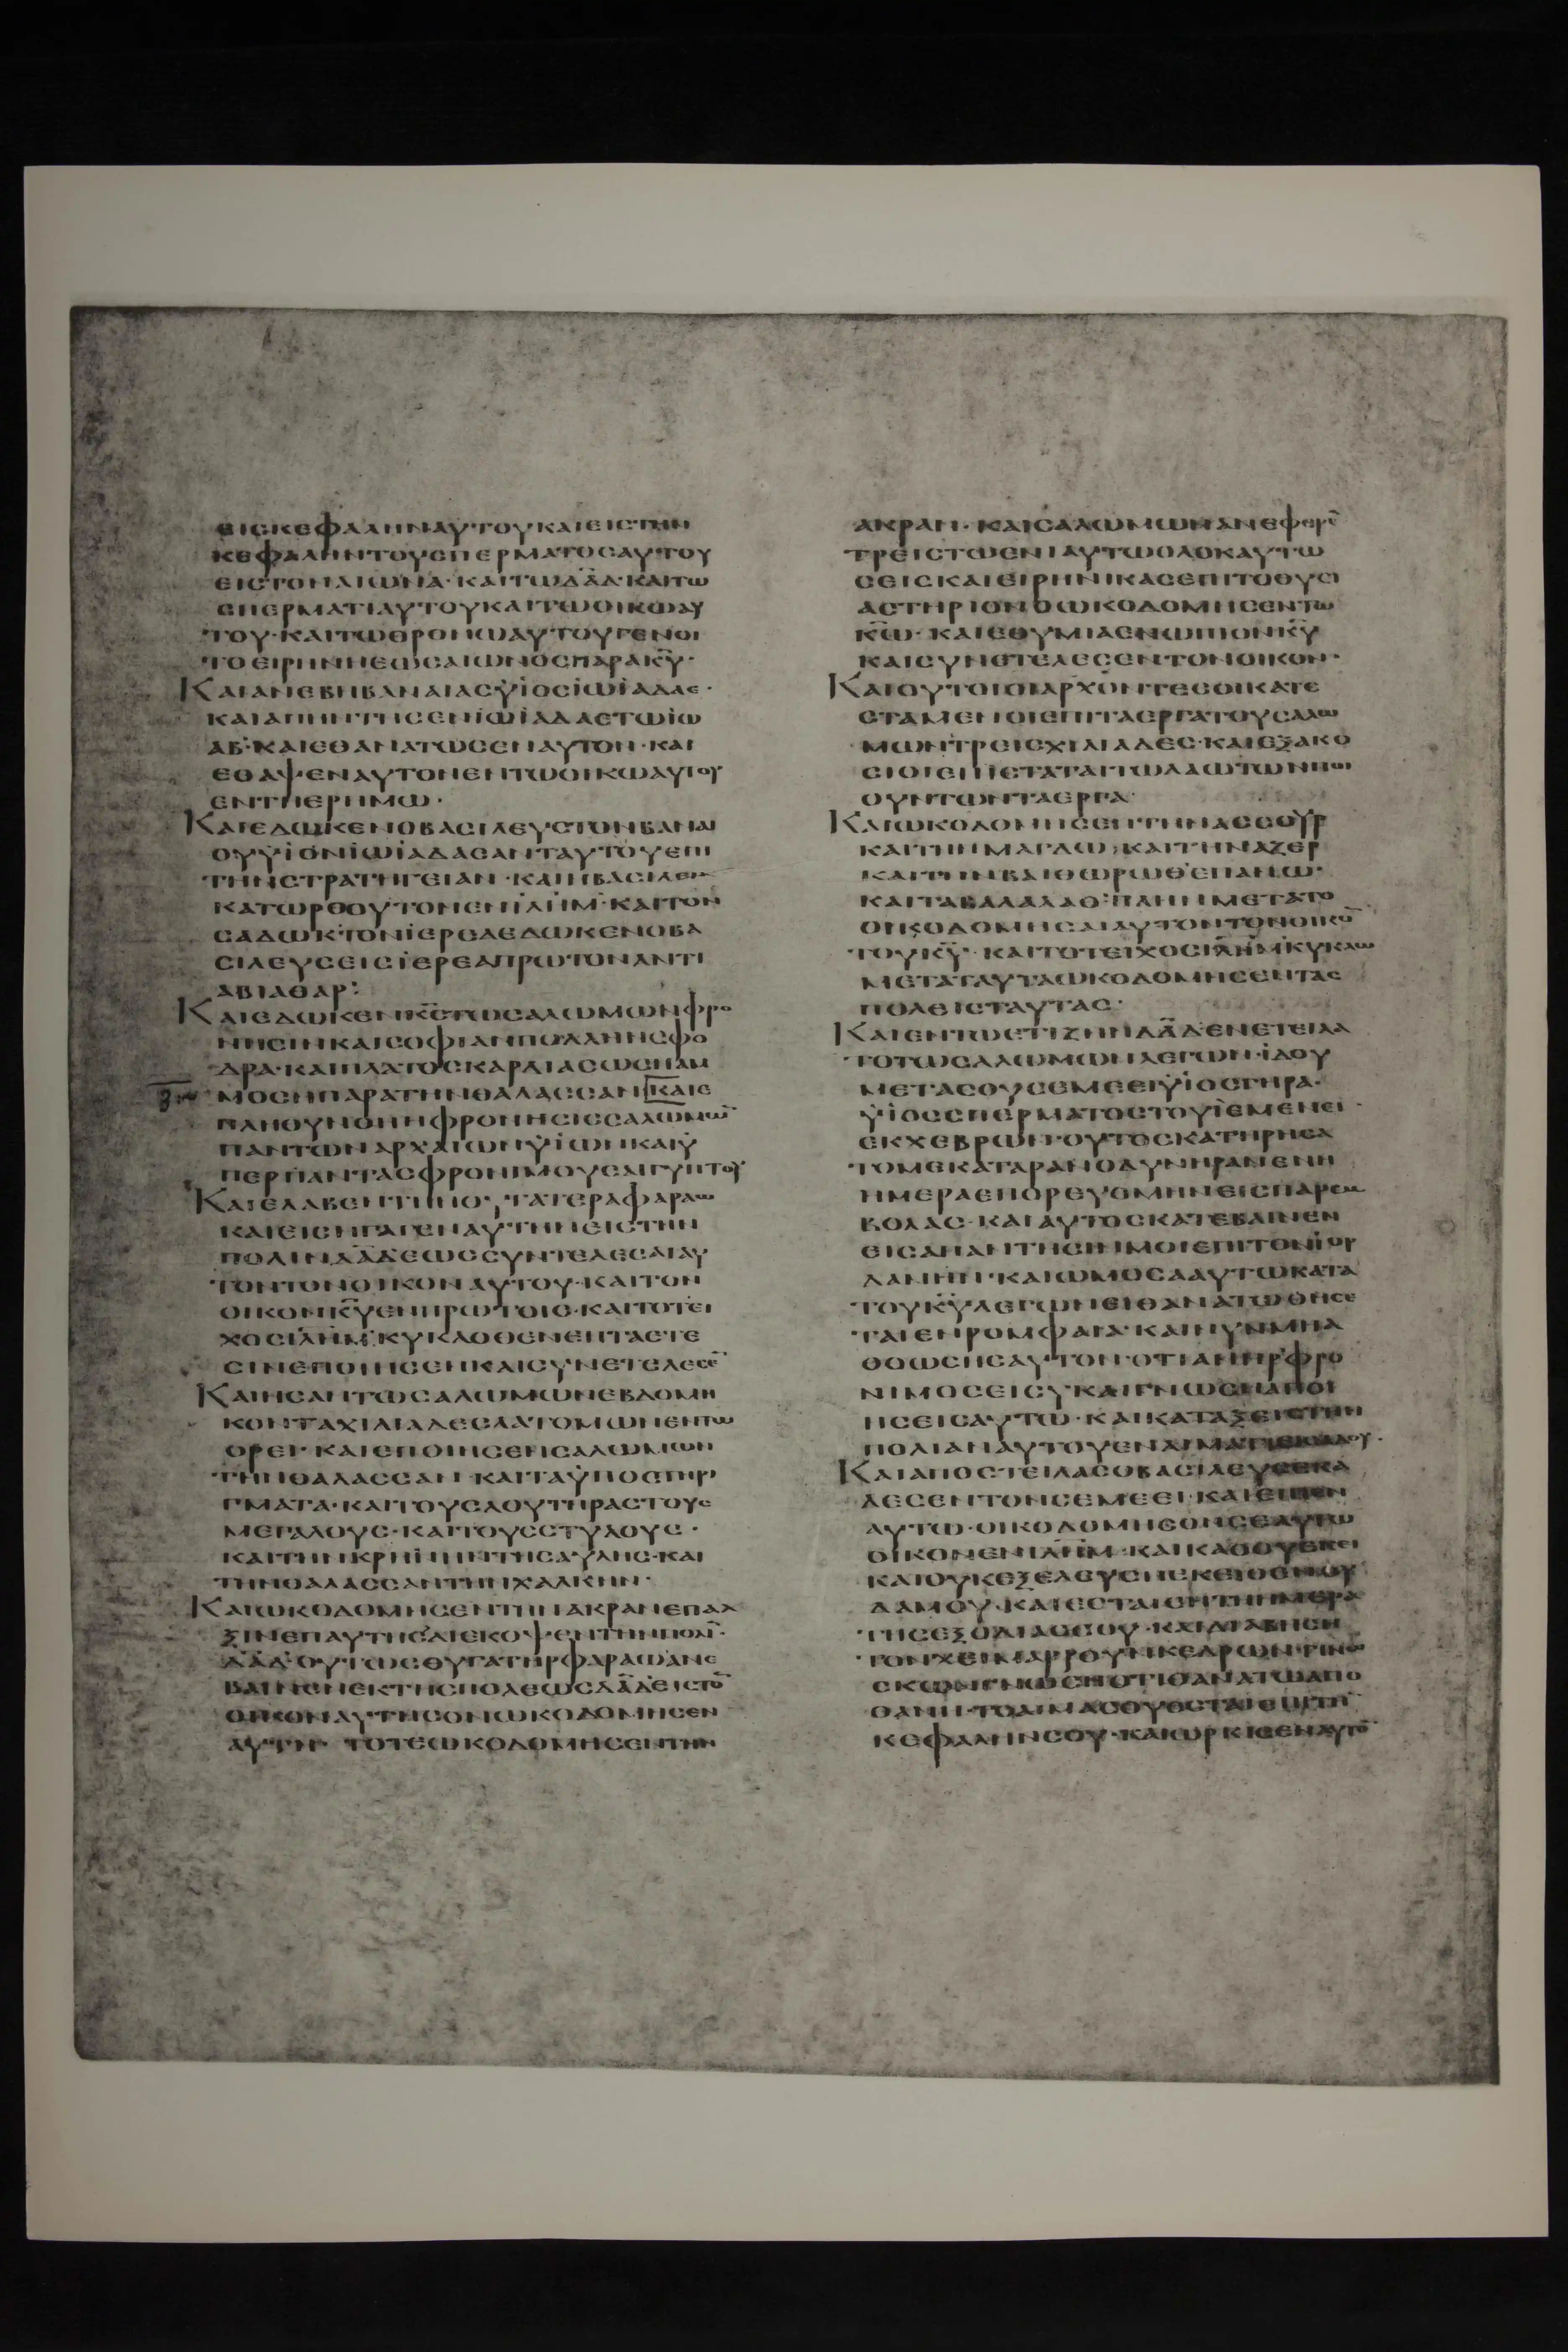 ΕΙΣΚΕΦΑΛΗΝΑΥΤΟΥΚΑΙΕΙΣΤΗΝ
ΚΕΦΑΛΗΝΤΟΥΣΠΕΡΜΑΤΟΣΑΥΤΟΥ
ΕΙΣΤΟΝΑΙΩΝΑ·ΚΑΙΤΩΔΑ̅Δ·ΚΑΙΤΩ
ΣΠΕΡΜΑΤΙΑΥΤΟΥΚΑΙΤΩΟΙΚΩΑΥ
ΤΟΥ·ΚΑΙΤΩΘΡΟΝΩΑΥΤΟΥΓΕΝΟΙ
ΤΟΕΙΡΗΝΗΕΩΣΑΙΩΝΟΣΠΑΡΑΚ̅Υ̅·
ΚΑΙΑΝΕΒΗΒΑΝΑΙΑΣΫΙΟΣΪΩΪΑΔΑΕ·
ΚΑΙΑΠΗΝΤΗΣΕΝΪΩΪΑΔΑΕΤΩΪΩ
ΑΒ·ΚΑΙΕΘΑΝΑΤΩΣΕΝΑΥΤΟΝ·ΚΑΙ
ΕΘΑΨΕΝΑΥΤΟΝΕΝΤΩΟΙΚΩΑΥΤΟΥ
ΕΝΤΗΕΡΗΜΩ·
ΚΑΙΕΔΩΚΕΝΟΒΑΣΙΛΕΥΣΤΟΝΒΑΝΑΙ
ΟΥΫΙΟΝΪΩΪΑΔΑΣΑΝΤΑΥΤΟΥΕΠΙ
ΤΗΝΣΤΡΑΤΗΓΕΙΑΝ·ΚΑΙΗΒΑΣΙΛΕΙΑ
ΚΑΤΩΡΘΟΥΤΟΝΕΝΪΛΗ̅Μ·ΚΑΙΤΟΝ
ΣΑΔΩΚ·ΤΟΝΪΕΡΕΑΕΔΩΚΕΝΟΒΑ
ΣΙΛΕΥΣΕΙΣΪΕΡΕΑΠΡΩΤΟΝΑΝΤΙ
ΑΒΙΑΘΑΡ:
ΚΑΙΕΔΩΚΕΝΚ̅Σ̅ΤΩΣΑΛΩΜΩΝΦΡΟ
ΝΗΣΙΝΚΑΙΣΟΦΙΑΝΠΟΛΛΗΝΣΦΟ
ΔΡΑ·ΚΑΙΠΛΑΤΟΣΚΑΡΔΙΑΣΩΣΗΑΜ
ΜΟΣΗΠΑΡΑΤΗΝΘΑΛΑΣΣΑΝΚΑΙΕ
ΠΛΗΘΥΝΘΗΗΦΡΟΝΗΣΙΣΣΑΛΩΜΩ̅
ΠΑΝΤΩΝΑΡΧΑΙΩΝΫΙΩΝΚΑΙΫ
ΠΕΡΠΑΝΤΑΣΦΡΟΝΙΜΟΥΣΑΙΓΥΠΤΟΥ
ΚΑΙΕΛΑΒΕΝΤΗΝΘΥΓΑΤΕΡΑΦΑΡΑΩ
ΚΑΙΕΙΣΗΓΑΓΕΝΑΥΤΗΝΕΙΣΤΗΝ
ΠΟΛΙΝΔΑ̅ΔΕΩΣΣΥΝΤΕΛΕΣΑΙΑΥ
ΤΟΝΤΟΝΟΙΚΟΝΑΥΤΟΥ·ΚΑΙΤΟΝ
ΟΙΚΟΝΚ̅Υ̅ΕΝΠΡΩΤΟΙΣ·ΚΑΙΤΟΤΕΙ
ΧΟΣΪΛΗ̅Μ·ΚΥΚΛΟΘΕΝΕΠΤΑΕΤΕ
ΣΙΝΕΠΟΙΗΣΕΝΚΑΙΣΥΝΕΤΕΛΕΣΕ̅
ΚΑΙΗΣΑΝΤΩΣΑΛΩΜΩΝΕΒΔΟΜΗ
ΚΟΝΤΑΧΙΛΙΑΔΕΣΛΑΤΟΜΩΝΕΝΤΩ
ΟΡΕΙ·ΚΑΙΕΠΟΙΗΣΕΝΣΑΛΩΜΩΝ
ΤΗΝΘΑΛΑΣΣΑΝ·ΚΑΙΤΑΫΠΟΣΤΗΡΙ
ΓΜΑΤΑ·ΚΑΙΤΟΥΣΛΟΥΤΗΡΑΣΤΟΥΣ
ΜΕΓΑΛΟΥΣ·ΚΑΙΤΟΥΣΣΤΥΛΟΥΣ·
ΚΑΙΤΗΝΚΡΗΝΗΝΤΗΣΑΥΛΗΣ·ΚΑΙ
ΤΗΝΘΑΛΑΣΣΑΝΤΗΝΧΑΛΚΗΝ·
ΚΑΙΩΚΟΔΟΜΗΣΕΝΤΗΝΑΚΡΑΝΕΠΑΛ
ΞΙΝΕΠΑΥΤΗΣ·ΔΙΕΚΟΨΕΝΤΗΝΠΟΛΙ̅·
ΔΑ̅Δ·ΟΥΤΩΣΘΥΓΑΤΗΡΦΑΡΑΩΑΝΕ
ΒΑΙΝΕΝΕΚΤΗΣΠΟΛΕΩΣΔΑ̅ΔΕΙΣΤΟ̅
ΟΙΚΟΝΑΥΤΗΣΟΝΩΚΟΔΟΜΗΣΕΝ
ΑΥΤΗ ΤΟΤΕΩΚΟΔΟΜΗΣΕΝΤΗΝ
ΑΚΡΑΝ·ΚΑΙΣΑΛΩΜΩΝΑΝΕΦΕΡΕ̅
ΤΡΕΙΣΤΩΕΝΙΑΥΤΩΟΛΟΚΑΥΤΩ
ΣΕΙΣΚΑΙΕΙΡΗΝΙΚΑΣΕΠΙΤΟΘΥΣΙ
ΑΣΤΗΡΙΟΝΟΩΚΟΔΟΜΗΣΕΝΤΩ
Κ̅Ω̅·ΚΑΙΕΘΥΜΙΑΕΝΩΠΙΟΝΚ̅Υ̅
ΚΑΙΣΥΝΕΤΕΛΕΣΕΝΤΟΝΟΙΚΟΝ·
ΚΑΙΟΥΤΟΙΟΙΑΡΧΟΝΤΕΣΟΙΚΑΤΕ
ΣΤΑΜΕΝΟΙΕΠΙΤΑΕΡΓΑΤΟΥΣΑΛΩ
ΜΩΝΤΡΕΙΣΧΙΛΙΑΔΕΣ·ΚΑΙΕΞΑΚΟ
ΣΙΟΙΕΠΙΣΤΑΤΑΙΤΩΛΑΩΤΩΝΠΟΙ
ΟΥΝΤΩΝΤΑΕΡΓΑ·
ΚΑΙΩΚΟΔΟΜΗΣΕΝΤΗΝΑΣΣΟΥΡ
ΚΑΙΤΗΝΜΑΓΔΩ·ΚΑΙΤΗΝΑΖΕΡ
ΚΑΙΤΗΝΒΑΙΘΩΡΩΘΕΠΑΝΩ·
ΚΑΙΤΑΒΑΛΑΛΑΘ:ΠΛΗΝΜΕΤΑΤΟ
ΟΙΚΟΔΟΜΗΣΑΙΑΥΤΟΝΤΟΝΟΙΚΟ̅
ΤΟΥΚ̅Υ̅·ΚΑΙΤΟΤΕΙΧΟΣΪΛΗ̅ΜΚΥΚΛΩ
ΜΕΤΑΤΑΥΤΑΩΚΟΔΟΜΗΣΕΝΤΑΣ
ΠΟΛΕΙΣΤΑΥΤΑΣ·
ΚΑΙΕΝΤΩΕΤΙΖΗΝΔΑ̅ΔΕΝΕΤΕΙΛΑ
ΤΟΤΩΣΑΛΩΜΩΝΛΕΓΩΝ·ΪΔΟΥ
ΜΕΤΑΣΟΥΣΕΜΕΕΙΫΙΟΣΓΗΡΑ·
ΫΙΟΣΣΠΕΡΜΑΤΟΣΤΟΥΪΕΜΕΝΕΙ·
ΕΚΧΕΒΡΩΝ·ΟΥΤΟΣΚΑΤΗΡΑΣΑ
ΤΟΜΕΚΑΤΑΡΑΝΟΔΥΝΗΡΑΝΕΝΗ
ΗΜΕΡΑΕΠΟΡΕΥΟΜΗΝΕΙΣΠΑΡΕΜ
ΒΟΛΑΣ·ΚΑΙΑΥΤΟΣΚΑΤΕΒΑΙΝΕΝ
ΕΙΣΑΠΑΝΤΗΣΙΝΜΟΙΕΠΙΤΟΝΪΟΡ
ΔΑΝΗΝ·ΚΑΙΩΜΟΣΑΑΥΤΩΚΑΤΑ
ΤΟΥΚ̅Υ̅ΛΕΓΩΝΕΙΘΑΝΑΤΩΘΗΣΕ
ΤΑΙΕΝΡΟΜΦΑΙΑ·ΚΑΙΝΥΝΜΗΑ
ΘΟΩΣΗΣΑΥΤΟΝ·ΟΤΙΑΝΗΡΦΡΟ
ΝΙΜΟΣΕΙΣΥΚΑΙΓΝΩΣΗΑΠΟΙ
ΗΣΕΙΣΑΥΤΩ·ΚΑΙΚΑΤΑΞΕΙΣΤΗΝ
ΠΟΛΙΑΝΑΥΤΟΥΕΝΑΙΜΑΤΙ
ΚΑΙΑΠΟΣΤΕΙΛΑΣΟΒΑΣΙΛΕΥΣΕΚΑ
ΛΕΣΕΝΤΟΝΣΕΜΕΕΙ·ΚΑΙΕΙΠΕΝ
ΑΥΤΩ·ΟΙΚΟΔΟΜΗΣΟΝΣΕΑΥΤΩ
ΟΙΚΟΝΕΝΪΛΗ̅Μ·ΚΑΙΚΑΘΟΥΕΚΕΙ
ΚΑΙΟΥΚΕΞΕΛΕΥΣΗΕΚΕΙΘΕΝΟΥ
ΔΑΜΟΥ·ΚΑΙΕΣΤΑΙΕΝΤΗΗΜΕΡΑ
ΤΗΣΕΞΟΔΙΑΣΣΟΥ·ΚΑΙΔΙΑΒΗΣΗ
ΤΟΝΧΕΙΜΑΡΡΟΥΝΚΕΔΡΩΝ·ΓΙΝΩ
ΣΚΩΝΓΝΩΣΗΟΤΙΘΑΝΑΤΩΑΠΟ
ΘΑΝΗ·ΤΟΑΙΜΑΣΟΥΕΣΤΑΙΕΠΙΤΗ̅
ΚΕΦΑΛΗΝΣΟΥ·ΚΑΙΩΡΚΙΣΕΝΑΥΤΟ̅